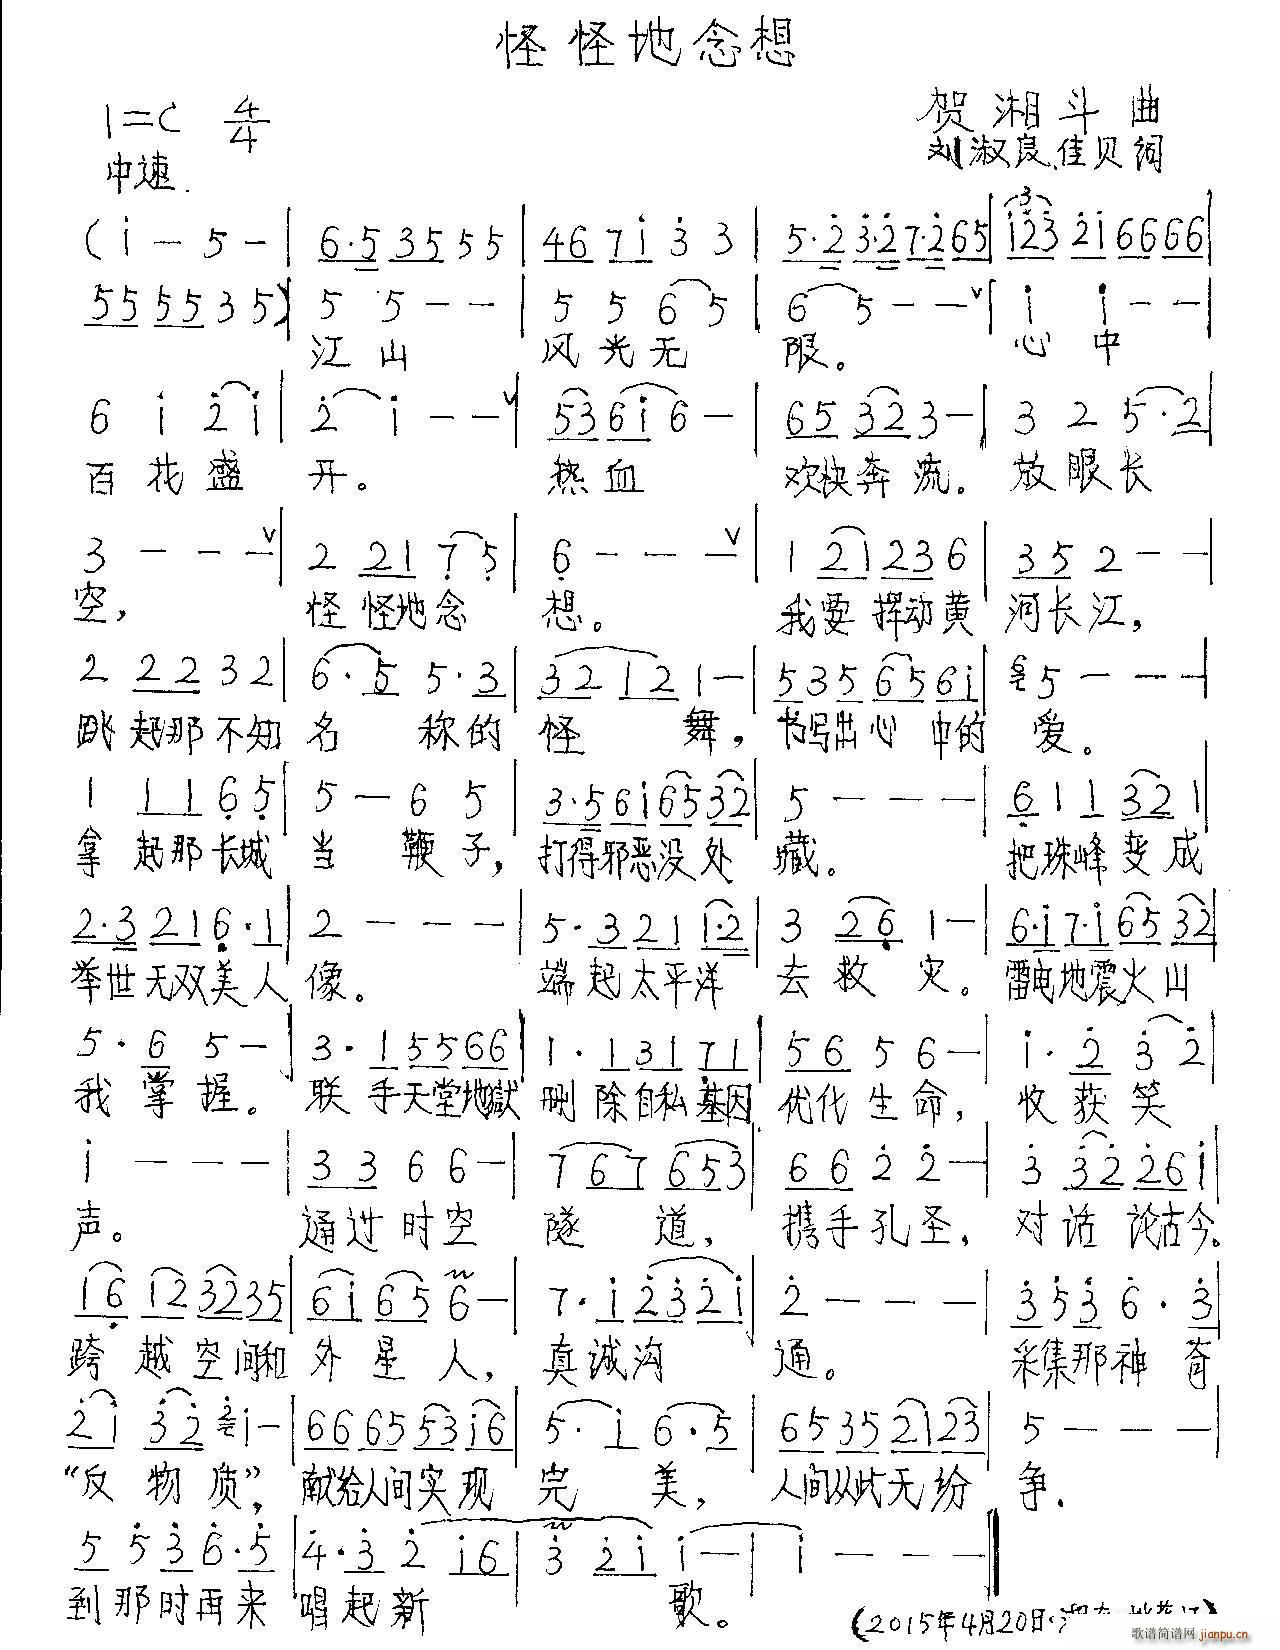 怪怪地念想
1=C 4/4
贺湘斗 曲
中速
刘淑良、佳贝词
(i - 5 - | 6·5 35 5 5 | 46 7i 3 3 | 5·2 3·2 7·2 65 | i23 2i 66 66 |
55 55 3 5) | 5 5 - - | 5 5 6 5 | 6 5 - - ∨ | i i - - |
江山 风光无 限。 心中
6 i 2 i | 2 i - - ∨ | 53 6i 6 - | 65 32 3 - | 3 2 5·2 |
百花盛 开。 热血 欢快奔流。 放眼长
3 - - - ∨ | 2 21 7 5 | 6 - - - ∨ | 1 21 23 6 | 35 2 - - |
空, 怪怪地念 想。 我要挥动黄 河长江,
2 22 3 2 | 6·5 5·3 | 32 12 1 - | 53 5 65 6i | 6 5 - - - |
跳起那不知 名称的 怪舞, 书写出心中的 爱。
1 11 6 5 | 5 - 6 5 | 3·5 6i 65 32 | 5 - - - | 6 1 1 32 1 |
拿起那长城 当鞭子, 打得邪恶没处 藏。 把珠峰变成
2·3 21 6·1 | 2 - - - | 5·3 21 1·2 | 3 26 1 - | 6·i 7·i 65 32 |
举世无双美人 像。 端起太平洋 去救灾。 雷电地震火山
5·6 5 - | 3·1 55 66 | 1·1 31 71 | 56 5 6 - | i·2 3 2 |
我掌握。 联手天堂地狱 删除自私基因 优化生命, 收获笑
i - - - | 33 6 6 - | 7 67 6 53 | 66 2 2 - | 3 32 26 i |
声。 通过时空 隧道, 携手孔圣, 对话论古今。
16 12 32 35 | 6i 65 6 - | 7·i 23 2i | 2 - - - | 35 3 6·3 |
跨越空间和 外星人, 真诚沟 通。 采集那神奇
2i 32 2 i - | 66 65 53 i6 | 5·i 6·5 | 65 35 21 23 | 5 - - - |
“反物质”, 献给人间实现 完美, 人间从此无纷 争.
5 5 3 6·5 | 4·3 2 i6 | 3 2i i - | i - - - ‖
到那时再来 唱起新 歌。
(2015年4月20日·湖
歌谱简谱网
jianpu.cn